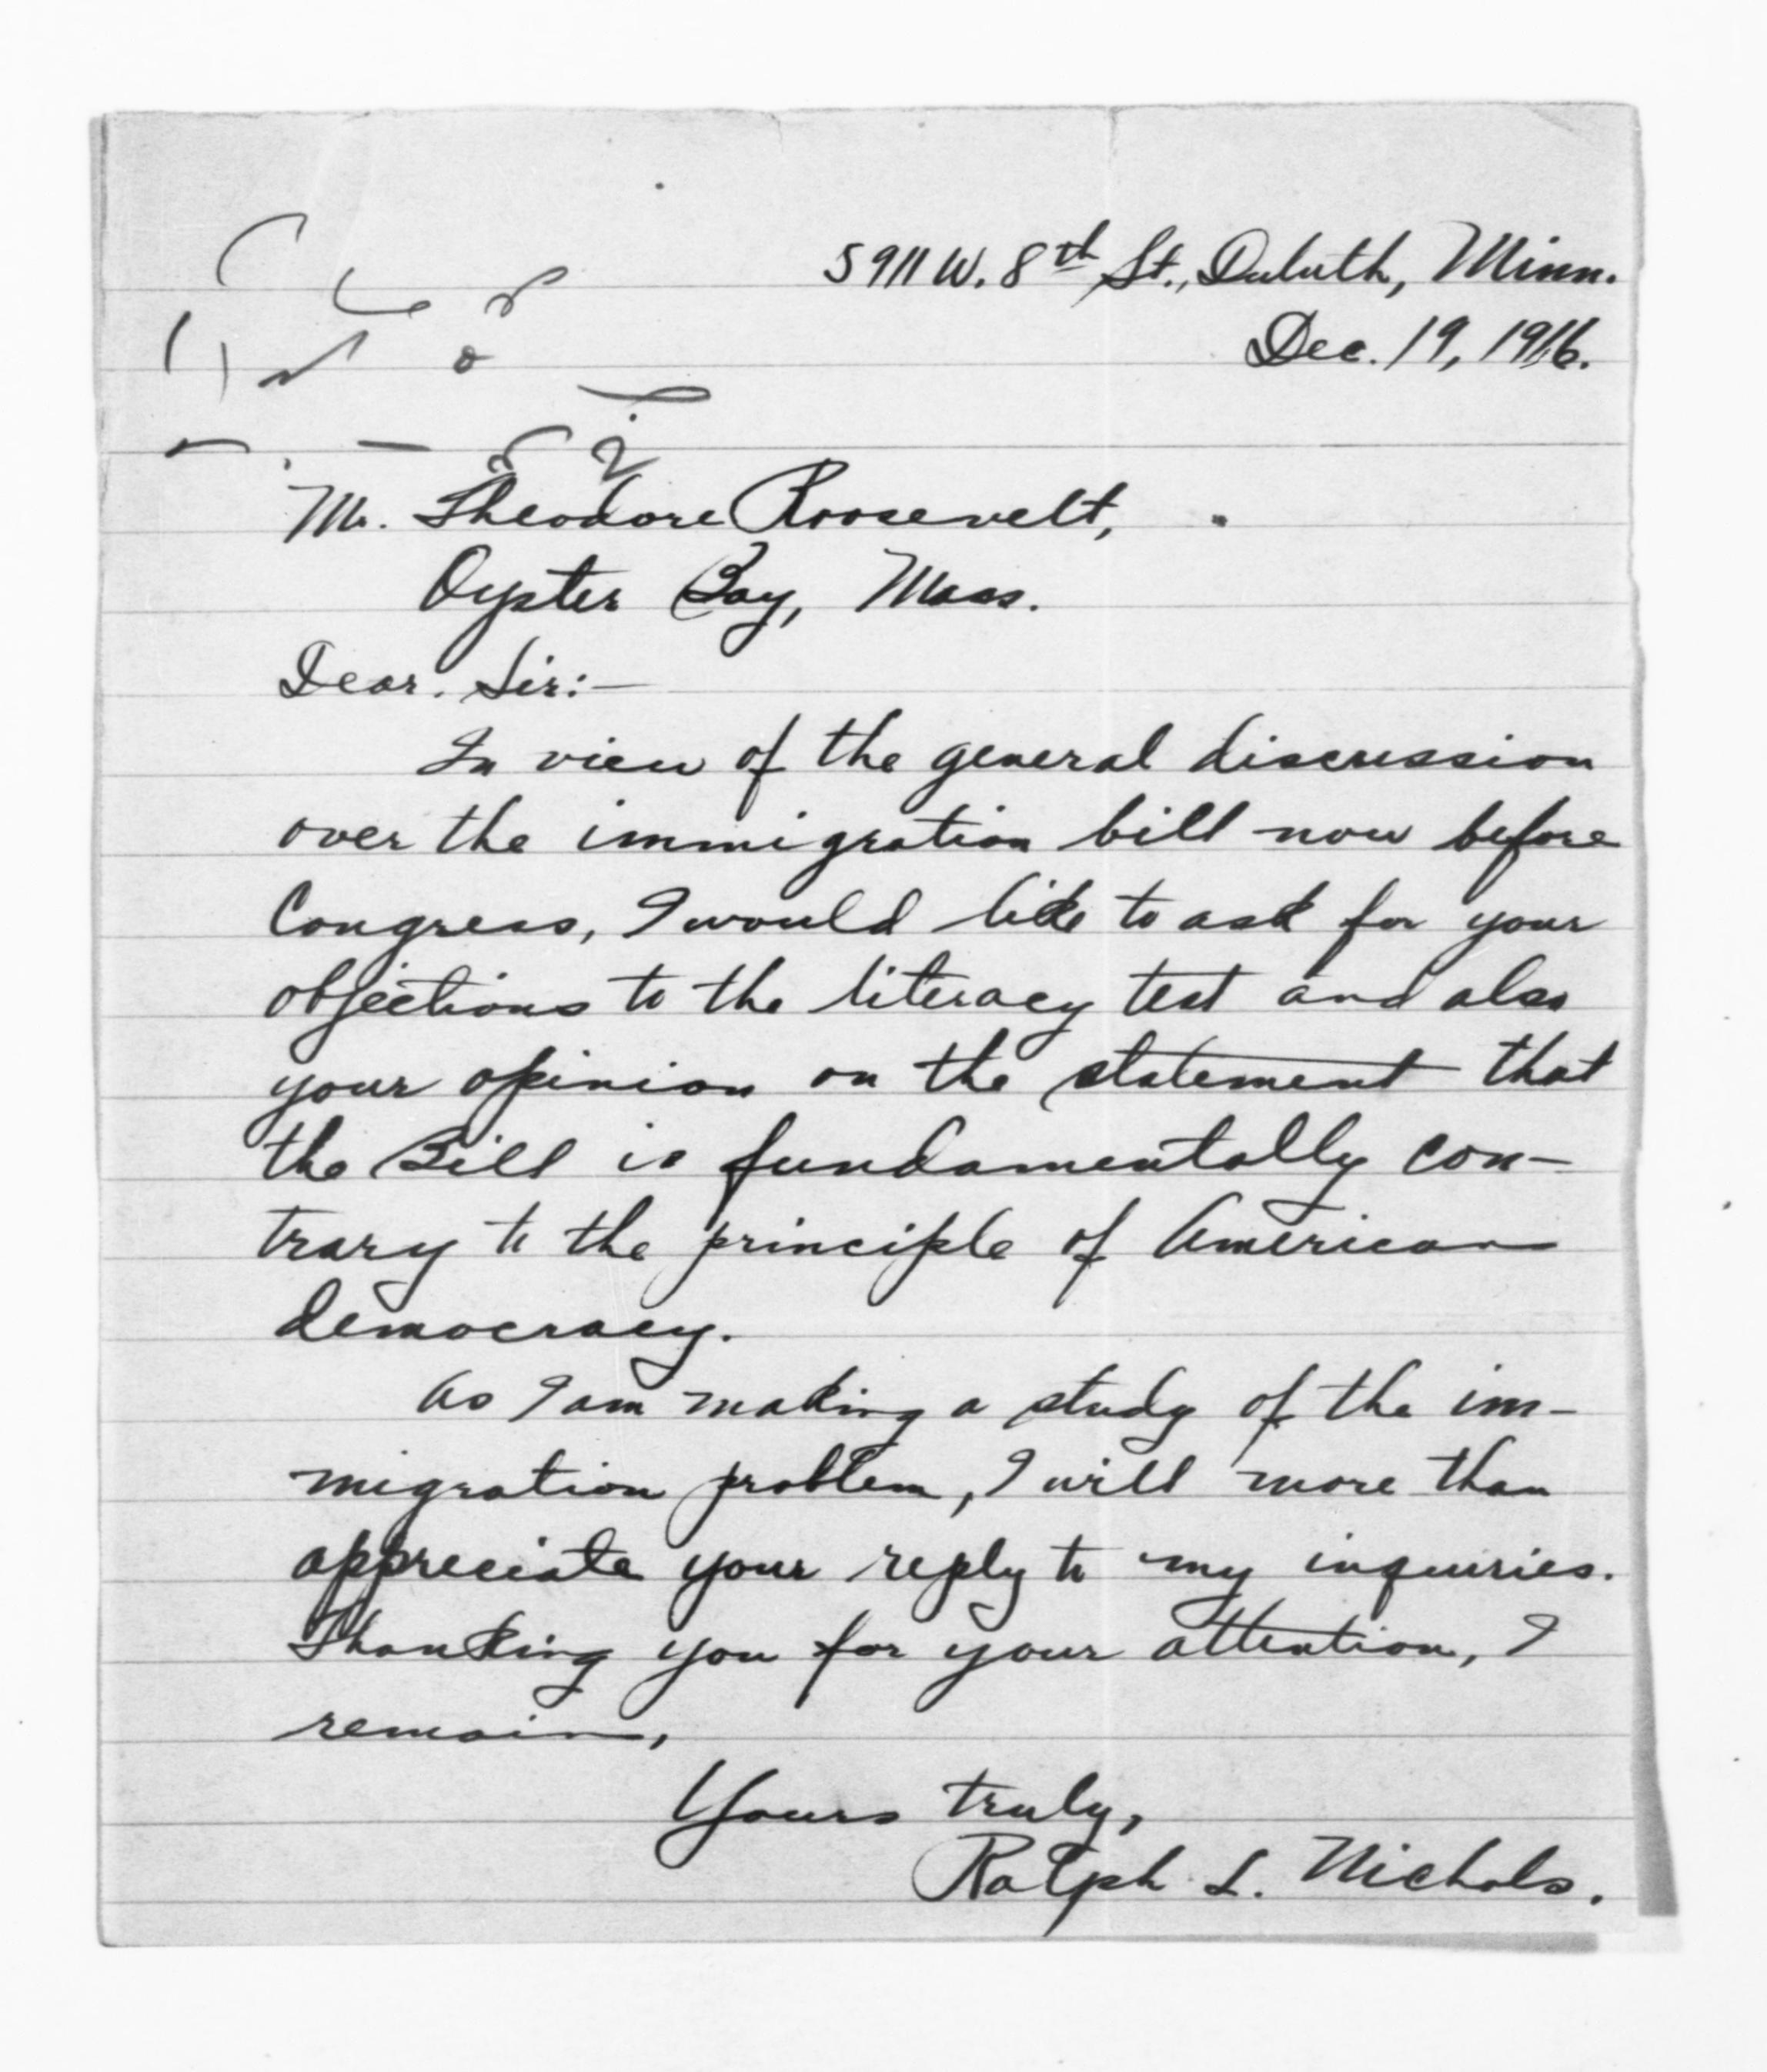 5911 W. 8th St., Duluth, Minn.
Dec. 19, 1916.
Mr. Theodore Roosevelt,
Oyster Bay, Mass.
Dear Sir:—
In view of the general discussion
over the immigration bill now before
Congress, I would like to ask for your
objections to the literacy test and also
your opinion on the statement that
the Bill is fundamentally con-
trary to the principle of American
democracy.
As I am making a study of the im-
migration problem, I will more than
appreciate your reply to my inquiries.
Thanking you for your attention, I
remain,
Yours truly,
Ralph L. Nichols.